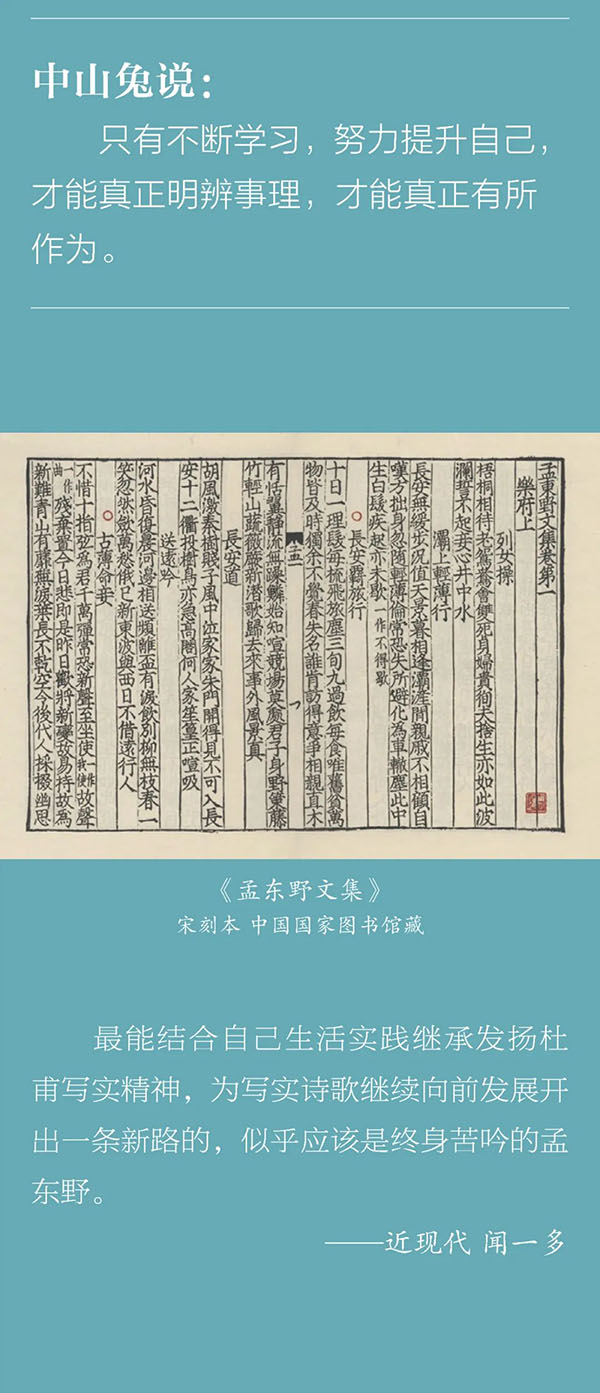 中山兔说：
只有不断学习，努力提升自己，
才能真正明辨事理，才能真正有所
作为。
孟東野文集卷第一
樂府上
列女操
梧桐相待老鴛鴦會雙死貞婦貴徇夫捨生亦如此波
瀾誓不起妾心井中水
灞上輕薄行
長安無緩步况值天景暮相逢灞滻間親戚不相顧自
嘆方拙身忽隨輕薄倫常恐失所避化為車轍塵此中
生白髮疾起亦未歇一作不得歇
長安羈旅行
十日一理髮每梳飛旅塵三旬九過飲每食唯舊貧萬
物皆及時獨余不覺春失名誰肯訪得意爭相親直木
有恬翼靜流無躁鱗始知喧競塲莫處君子身野策藤
竹輕山蔬薇蕨新潛歌歸去來事外風景真
長安道
胡風激秦樹賤子風中泣家家朱門開得見不可入長
安十二衢投樹鳥亦急高閣何人家笙簧正喧吸
送遠吟
河水昏復晨河邊相送頻離盃有淚飲別柳無枝春一
笑忽然歛萬愁俄已新東波與西日不惜遠行人
古薄命妾
不惜十指弦為君千萬彈常恐新聲至坐使故聲
殘棄置今日悲即是昨日歡將新變故易持故為
新難青山有蘼蕪淚葉長不乾空令後代人採掇幽思
《孟东野文集》
宋刻本 中国国家图书馆藏
最能结合自己生活实践继承发扬杜
甫写实精神，为写实诗歌继续向前发展开
出一条新路的，似乎应该是终身苦吟的孟
东野。
——近现代 闻一多